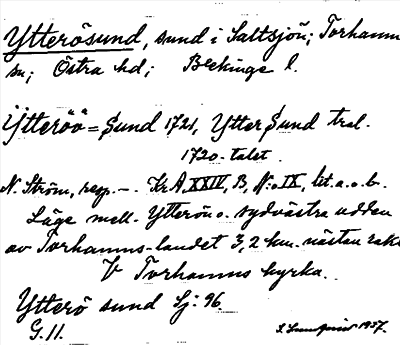 Ytterösund, sund i Saltsjön; Torhamns
sn; Östra hd; Blekinge l.
Ÿtteröö = Sund 1721, Ytter Sund trol.
1720-talet
N. Ström, resp. –. KrA XXIV, B, N:o IX, lit. a. o. b.
Läge mell. Ytterön o. sydvästra udden
av Torhamns-landet 3,2 km. nästan rakt
V Torhamns kyrka.
Ytterö sund Sj: 96
G. 11.
1937.